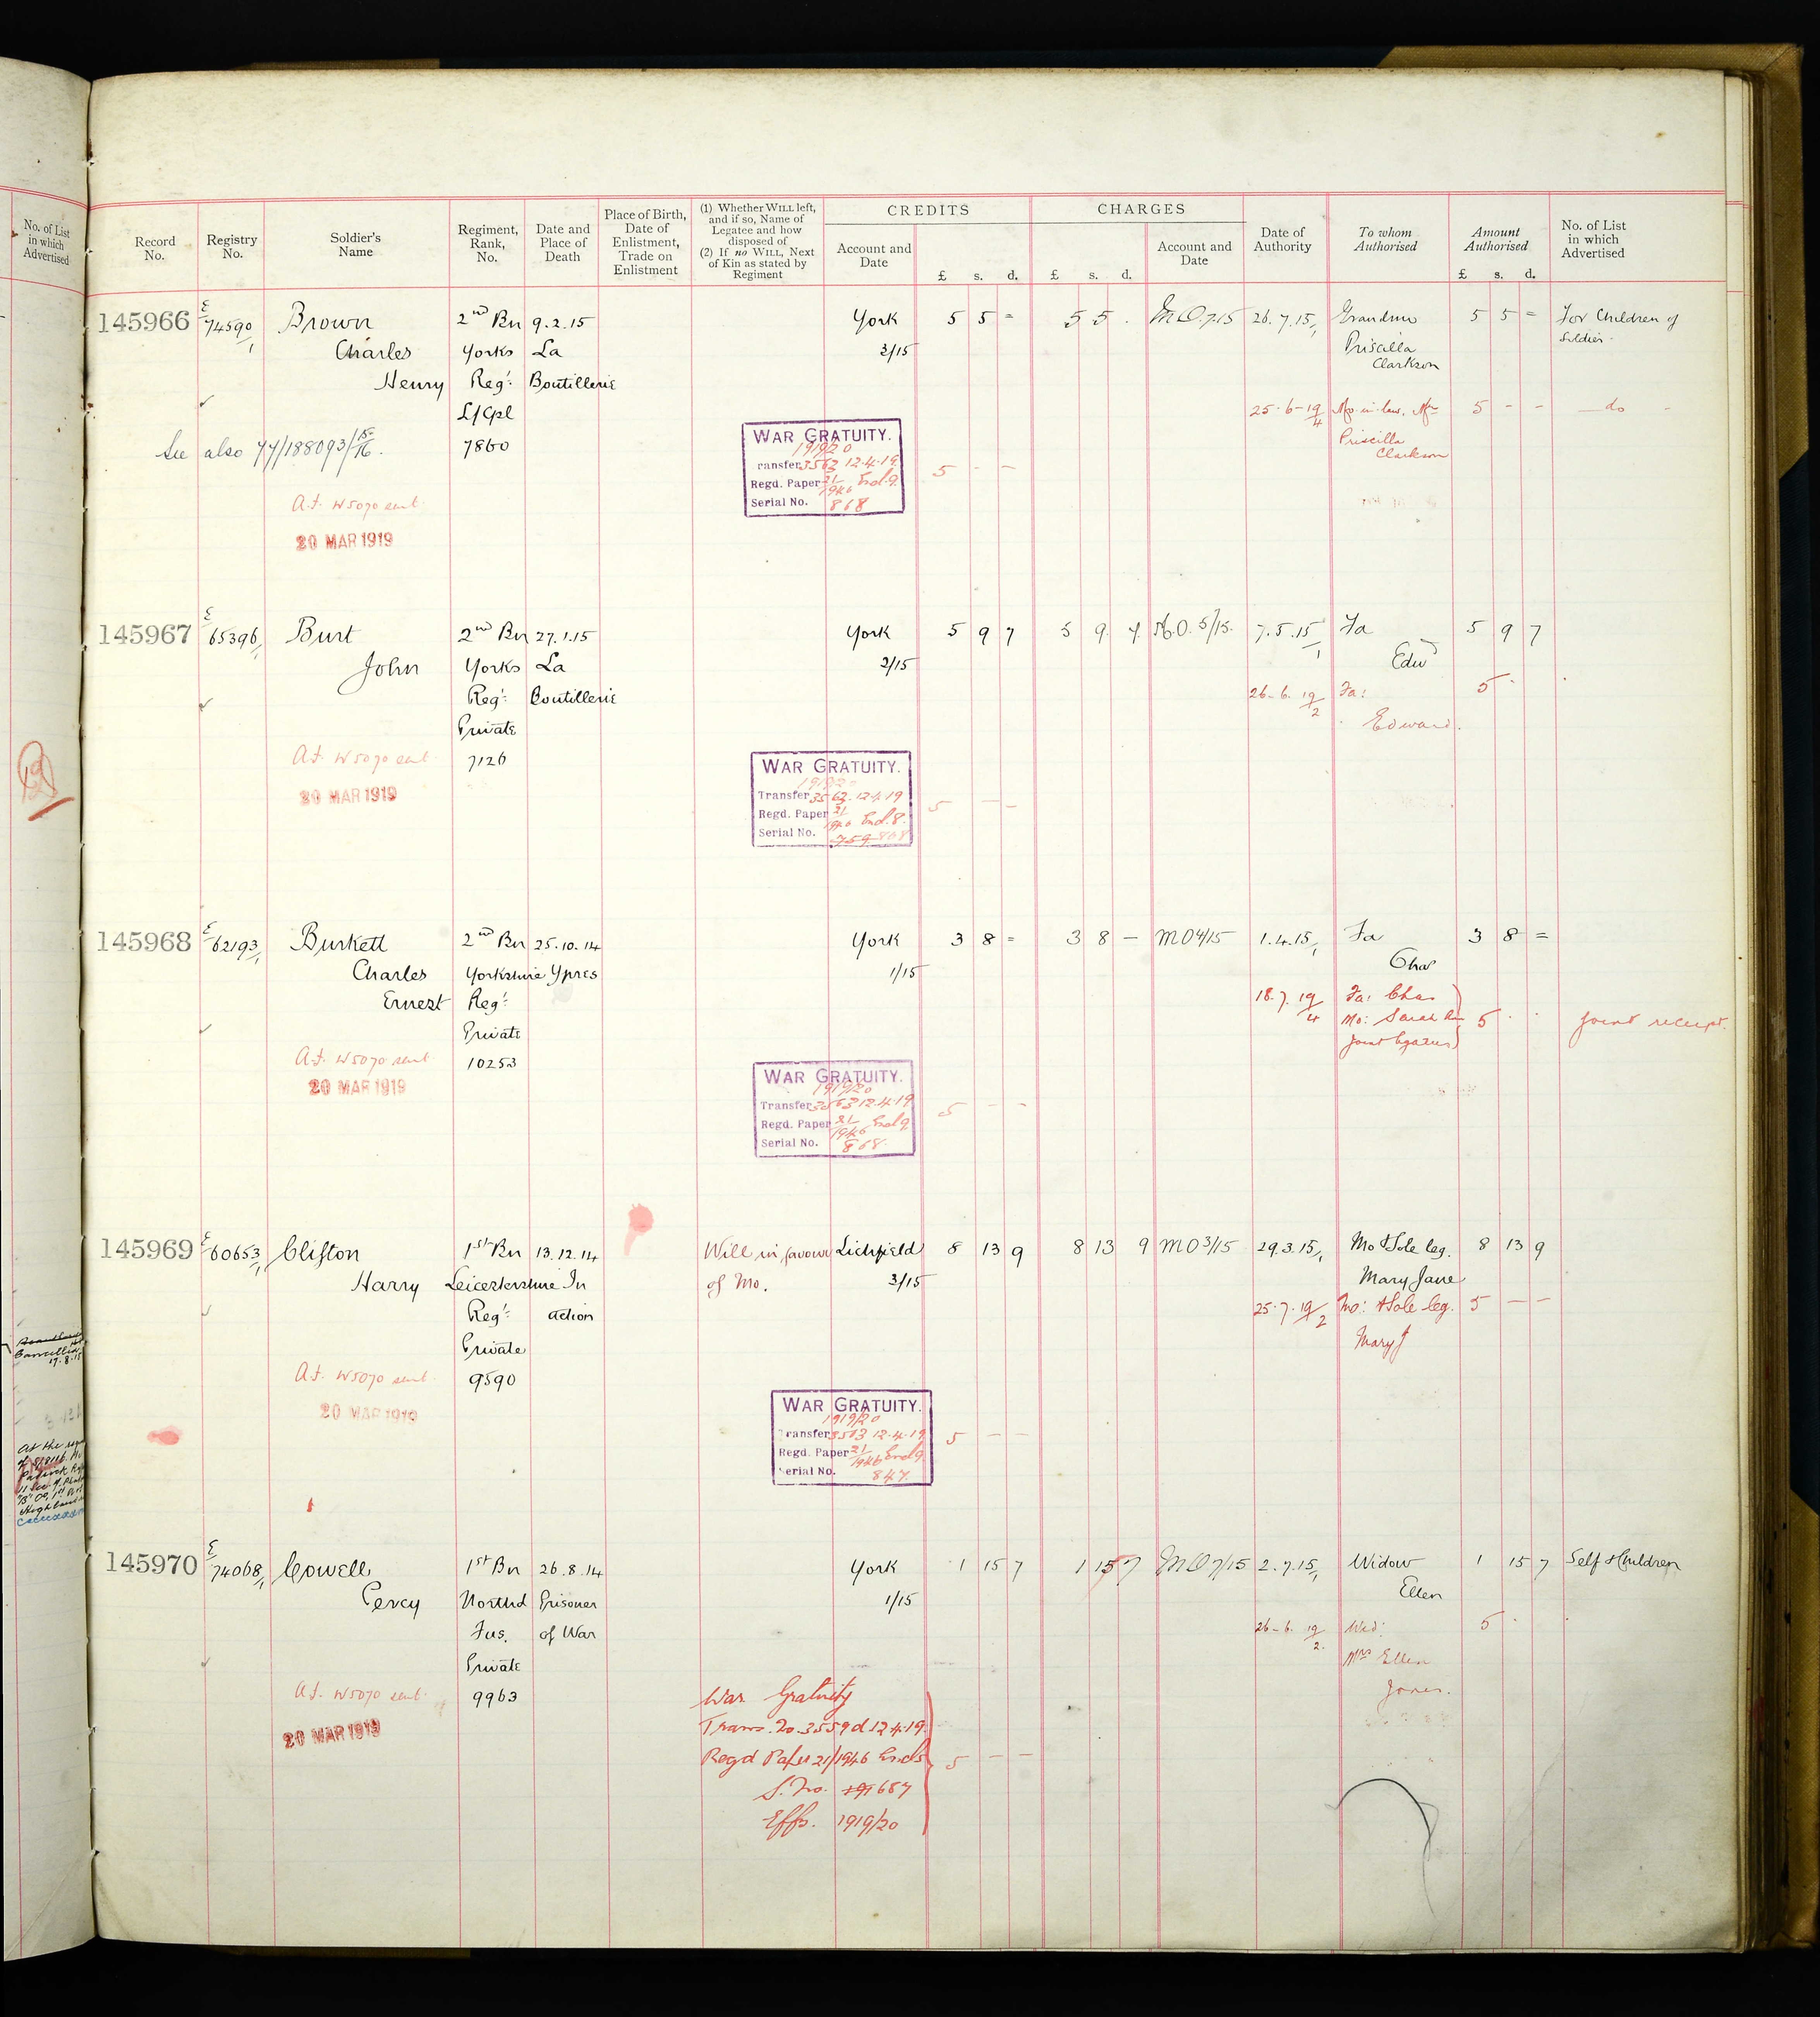 No. of List
in which
Advertised
Record
No.
Registry
No.
Soldier's
Name
Regiment,
Rank,
No.
Date and
Place of
Death
Place of Birth,
Date of
Enlistment,
Trade on
Enlistment
(1) Whether WILL left,
and if so, Name of
Legatee and how
disposed of
(2) If no WILL, Next
of Kin as stated by
Regiment
CREDITS
Account and
Date
£ s. d.
CHARGES
£ s. d.
Account and
Date
Date of
Authority
To whom
Authorised
Amount
Authorised
£ s. d.
No. of List
in which
Advertised
145966 E/74590/1 Brown 2nd Bn 9.2.15 York 5 5 = 5 5 . M.O.7.15 26.7.15/1 Grandmo 5 5 = For Children of
Charles Yorks La 3/15 Priscilla Soldier.
Henry Regt: Boutillerie Clarkson
L/Cpl 25-6-19/4 Mo-in-law. Mrs 5 - - — do -
See also 44/188093/15-16. 7860 Priscilla
Clarkson
WAR GRATUITY.
1919/20
Transfer 3562 12.4.19 5 - -
Regd. Paper 21/1946 Encl.9.
Serial No. 868
A.F. W5070 sent
20 MAR 1919
145967 E/65396/1 Burt 2nd Bn 27.1.15 York 5 9 7 5 9 7 M.O. 5/15. 7.5.15/1 Fa 5 9 7
John Yorks La 2/15 Edwd
Regt: Boutillerie 26-6.19/2 Fa: 5 .
Private Edward.
A.F. W5070 sent 7126
20 MAR 1919
WAR GRATUITY.
1919/20
Transfer 3562 12.4.19 5 - -
Regd. Paper 21/1946 Encl.8.
Serial No. 759 868
145968 E/62193/1 Burkett 2nd Bn 25.10.14 York 3 8 = 3 8 — MO4/15 1.4.15/1 Fa 3 8 =
Charles Yorkshire Ypres 1/15 Chas
Ernest Regt: 18.7.19/4 Fa: Chas
Private Mo: Sarah An 5 . . Joint receipt.
A.F. W5070 sent 10253 Joint legatees
20 MAR 1919
WAR GRATUITY.
1919/20
Transfer 3563 12.4.19 5 - -
Regd. Paper 21/1946 Encl 9.
Serial No. 868.
145969 E/60653/1 Clifton 1st Bn 13.12.14 Will in favour Lichfield 8 13 9 8 13 9 MO3/15 29.3.15/1 Mo & Sole leg. 8 13 9
Harry Leicestershire In of Mo. 3/15 Mary Jane
Regt: action 25.7.19/2 Mo: & Sole leg. 5 — —
Private Mary J
A.F. W5070 sent 9590
20 MAR 1919
WAR GRATUITY.
1919/20
Transfer 3563 12.4.19 5 - -
Regd. Paper 21/1946 Encl 9.
Serial No. 847.
145970 E/74068/1 Cowell 1st Bn 26.8.14 York 1 15 7 1 15 7 MO7/15 2.7.15/1 Widow 1 15 7 Self & Children
Percy Northd Prisoner 1/15 Ellen
Fus. of War 26-6.19/2. Wid: 5 .
Private Mrs Ellen
A.F. W5070 sent 9963 Jones.
20 MAR 1919
War Gratuity
Trans. No. 3559 d 12.4.19.
Regd Paper 21/1946 Encl 5 5 - -
S. No. 687
Effs. 1919/20